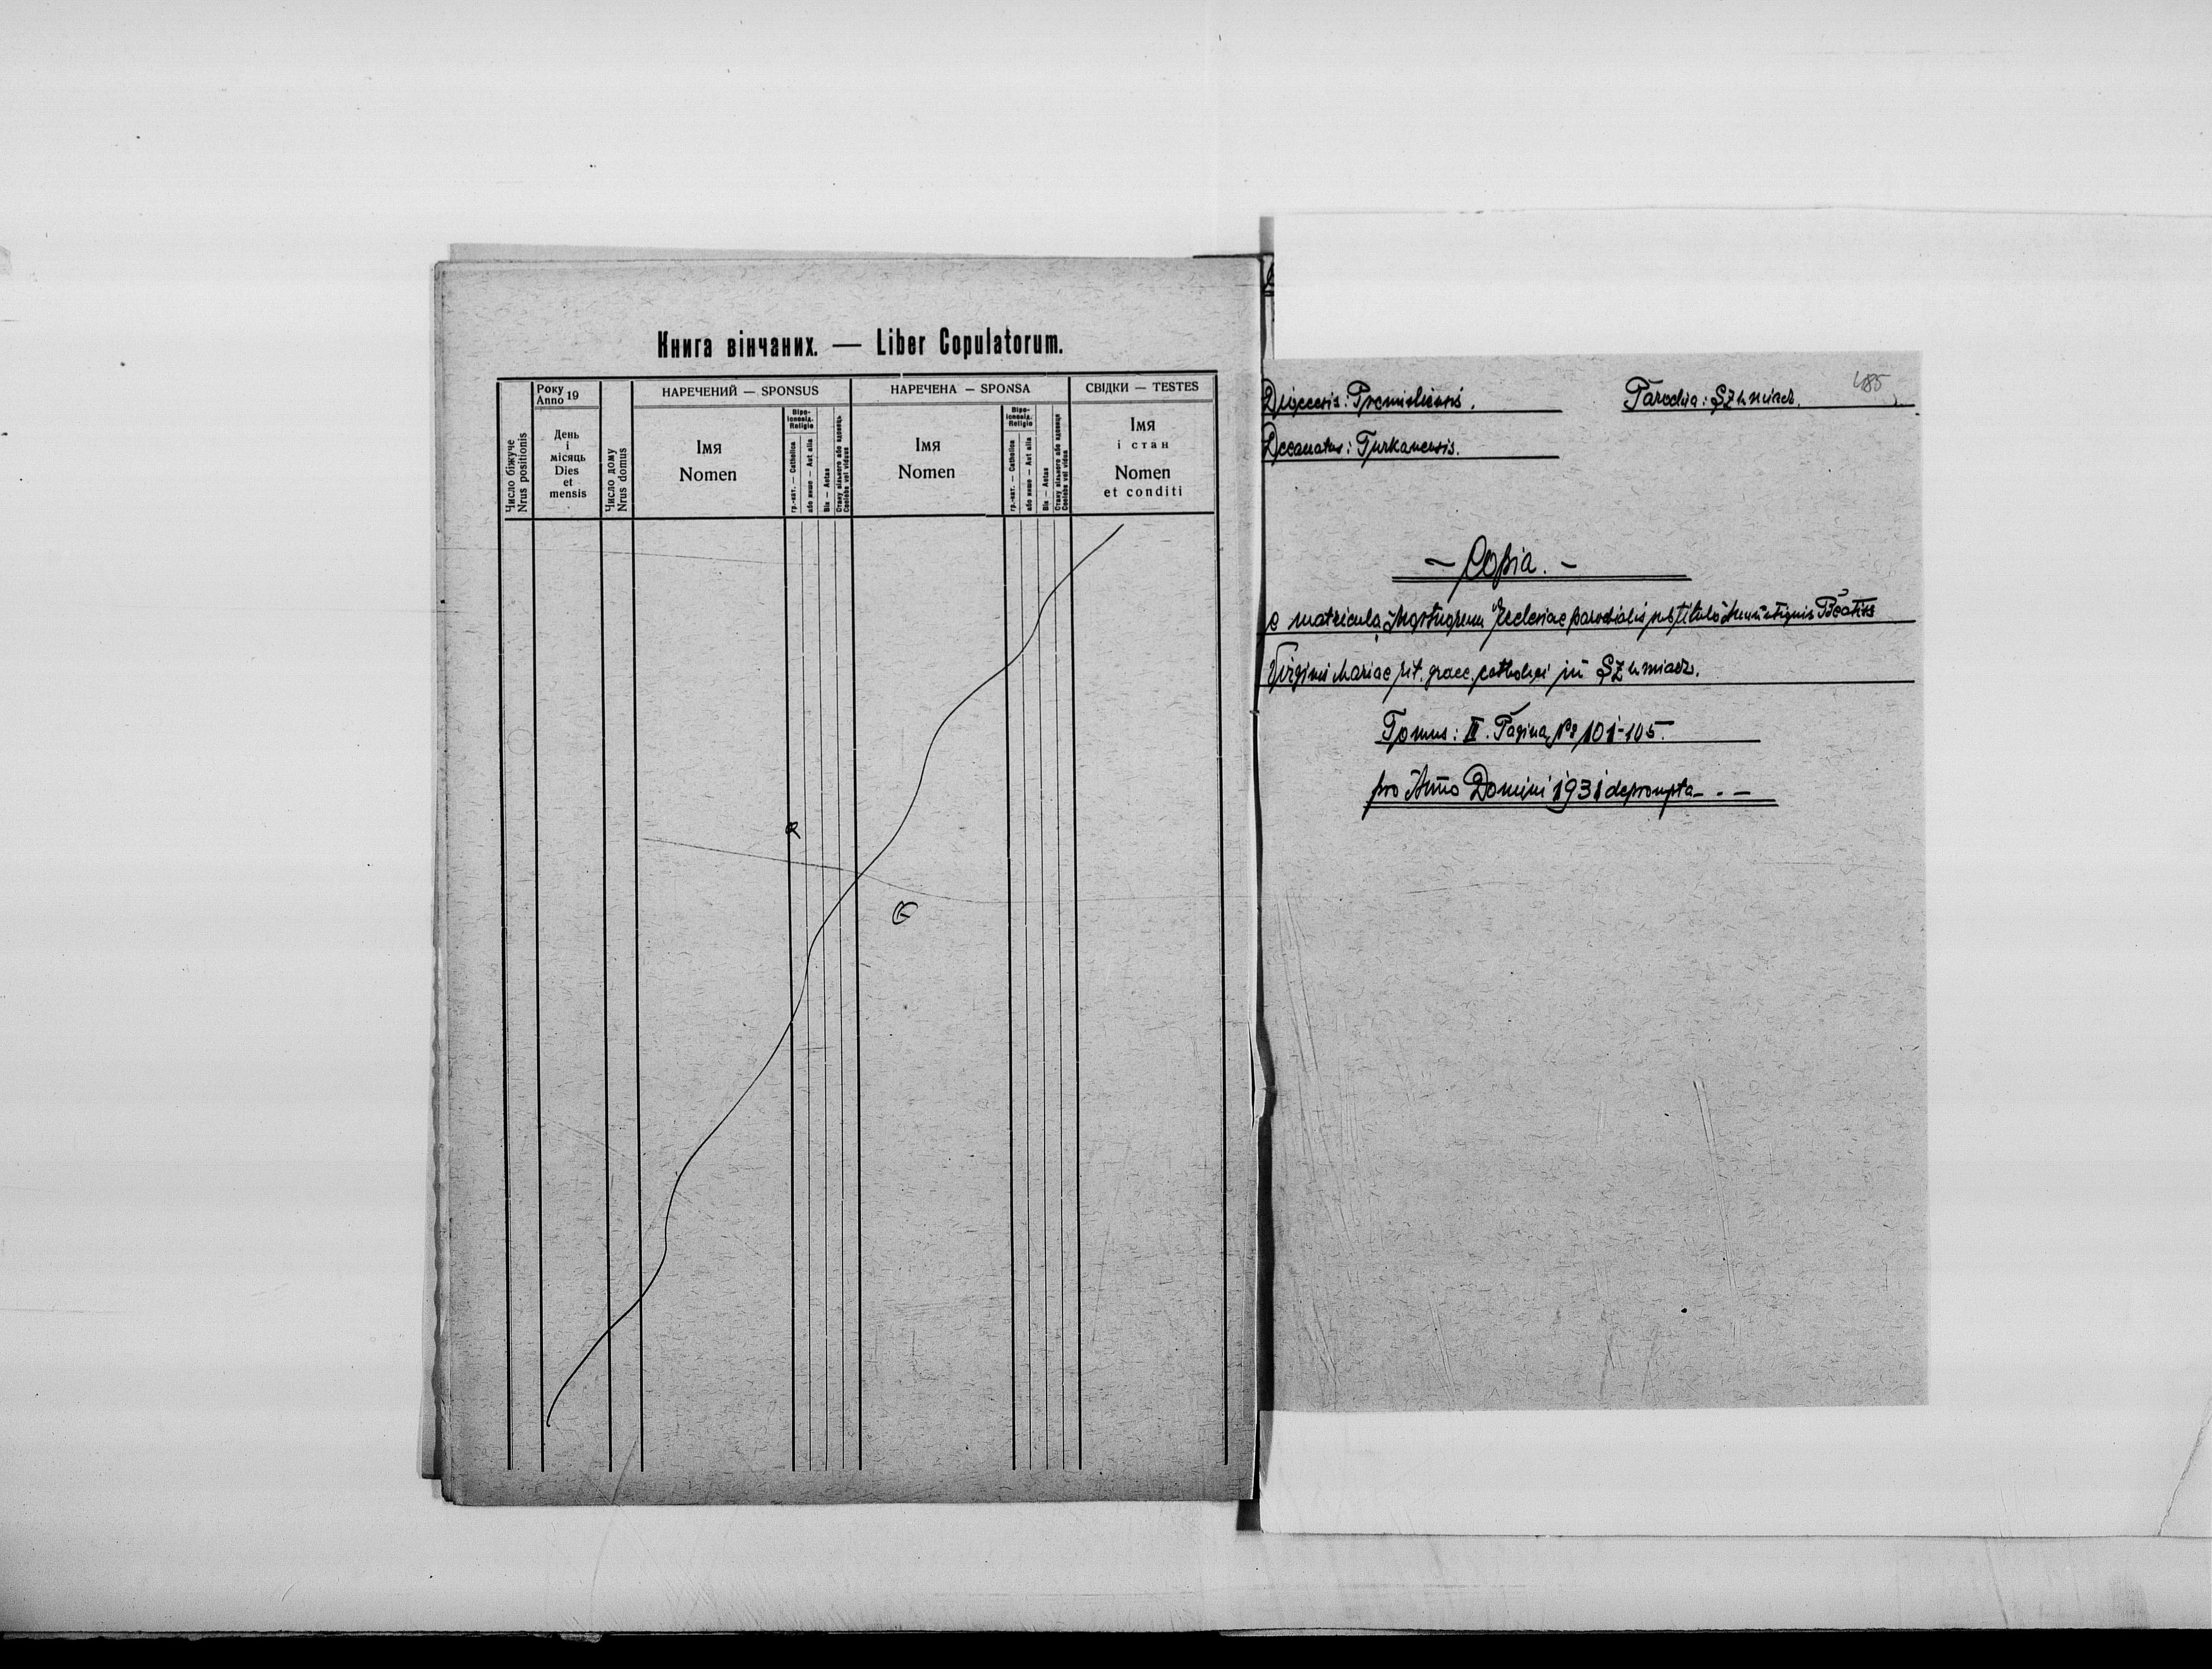 Книга вінчаних. — Liber Copulatorum.
Число біжуче
Nrus positionis
Року
Anno 19
День
і
місяць
Dies
et
mensis
Число дому
Nrus domus
НАРЕЧЕНИЙ — SPONSUS
Імя
Nomen
Віро-
ісповід.
Religio
гр.-кат. — Catholica
або инше — Aut alia
Вік — Aetas
Стану вільного або вдовець
Coelebs vel viduus
НАРЕЧЕНА — SPONSA
Імя
Nomen
Віро-
ісповід.
Religio
гр.-кат. — Catholica
або инше — Aut alia
Вік — Aetas
Стану вільного або вдовиця
Coelebs vel vidua
СВІДКИ — TESTES
Імя
і стан
Nomen
et conditi
485
Dioecesis: Premisliensis. Parochia:
Decanatus: Turkanensis.
- Copia. -
e matricula Mortuorum Ecclesiae parochialis sub titulo Beatiss
Virginis Mariae rit. graec. catholici in
Tomus: II. Pagina № 101-105.
pro Anno Domini 1931 deprompta - . -